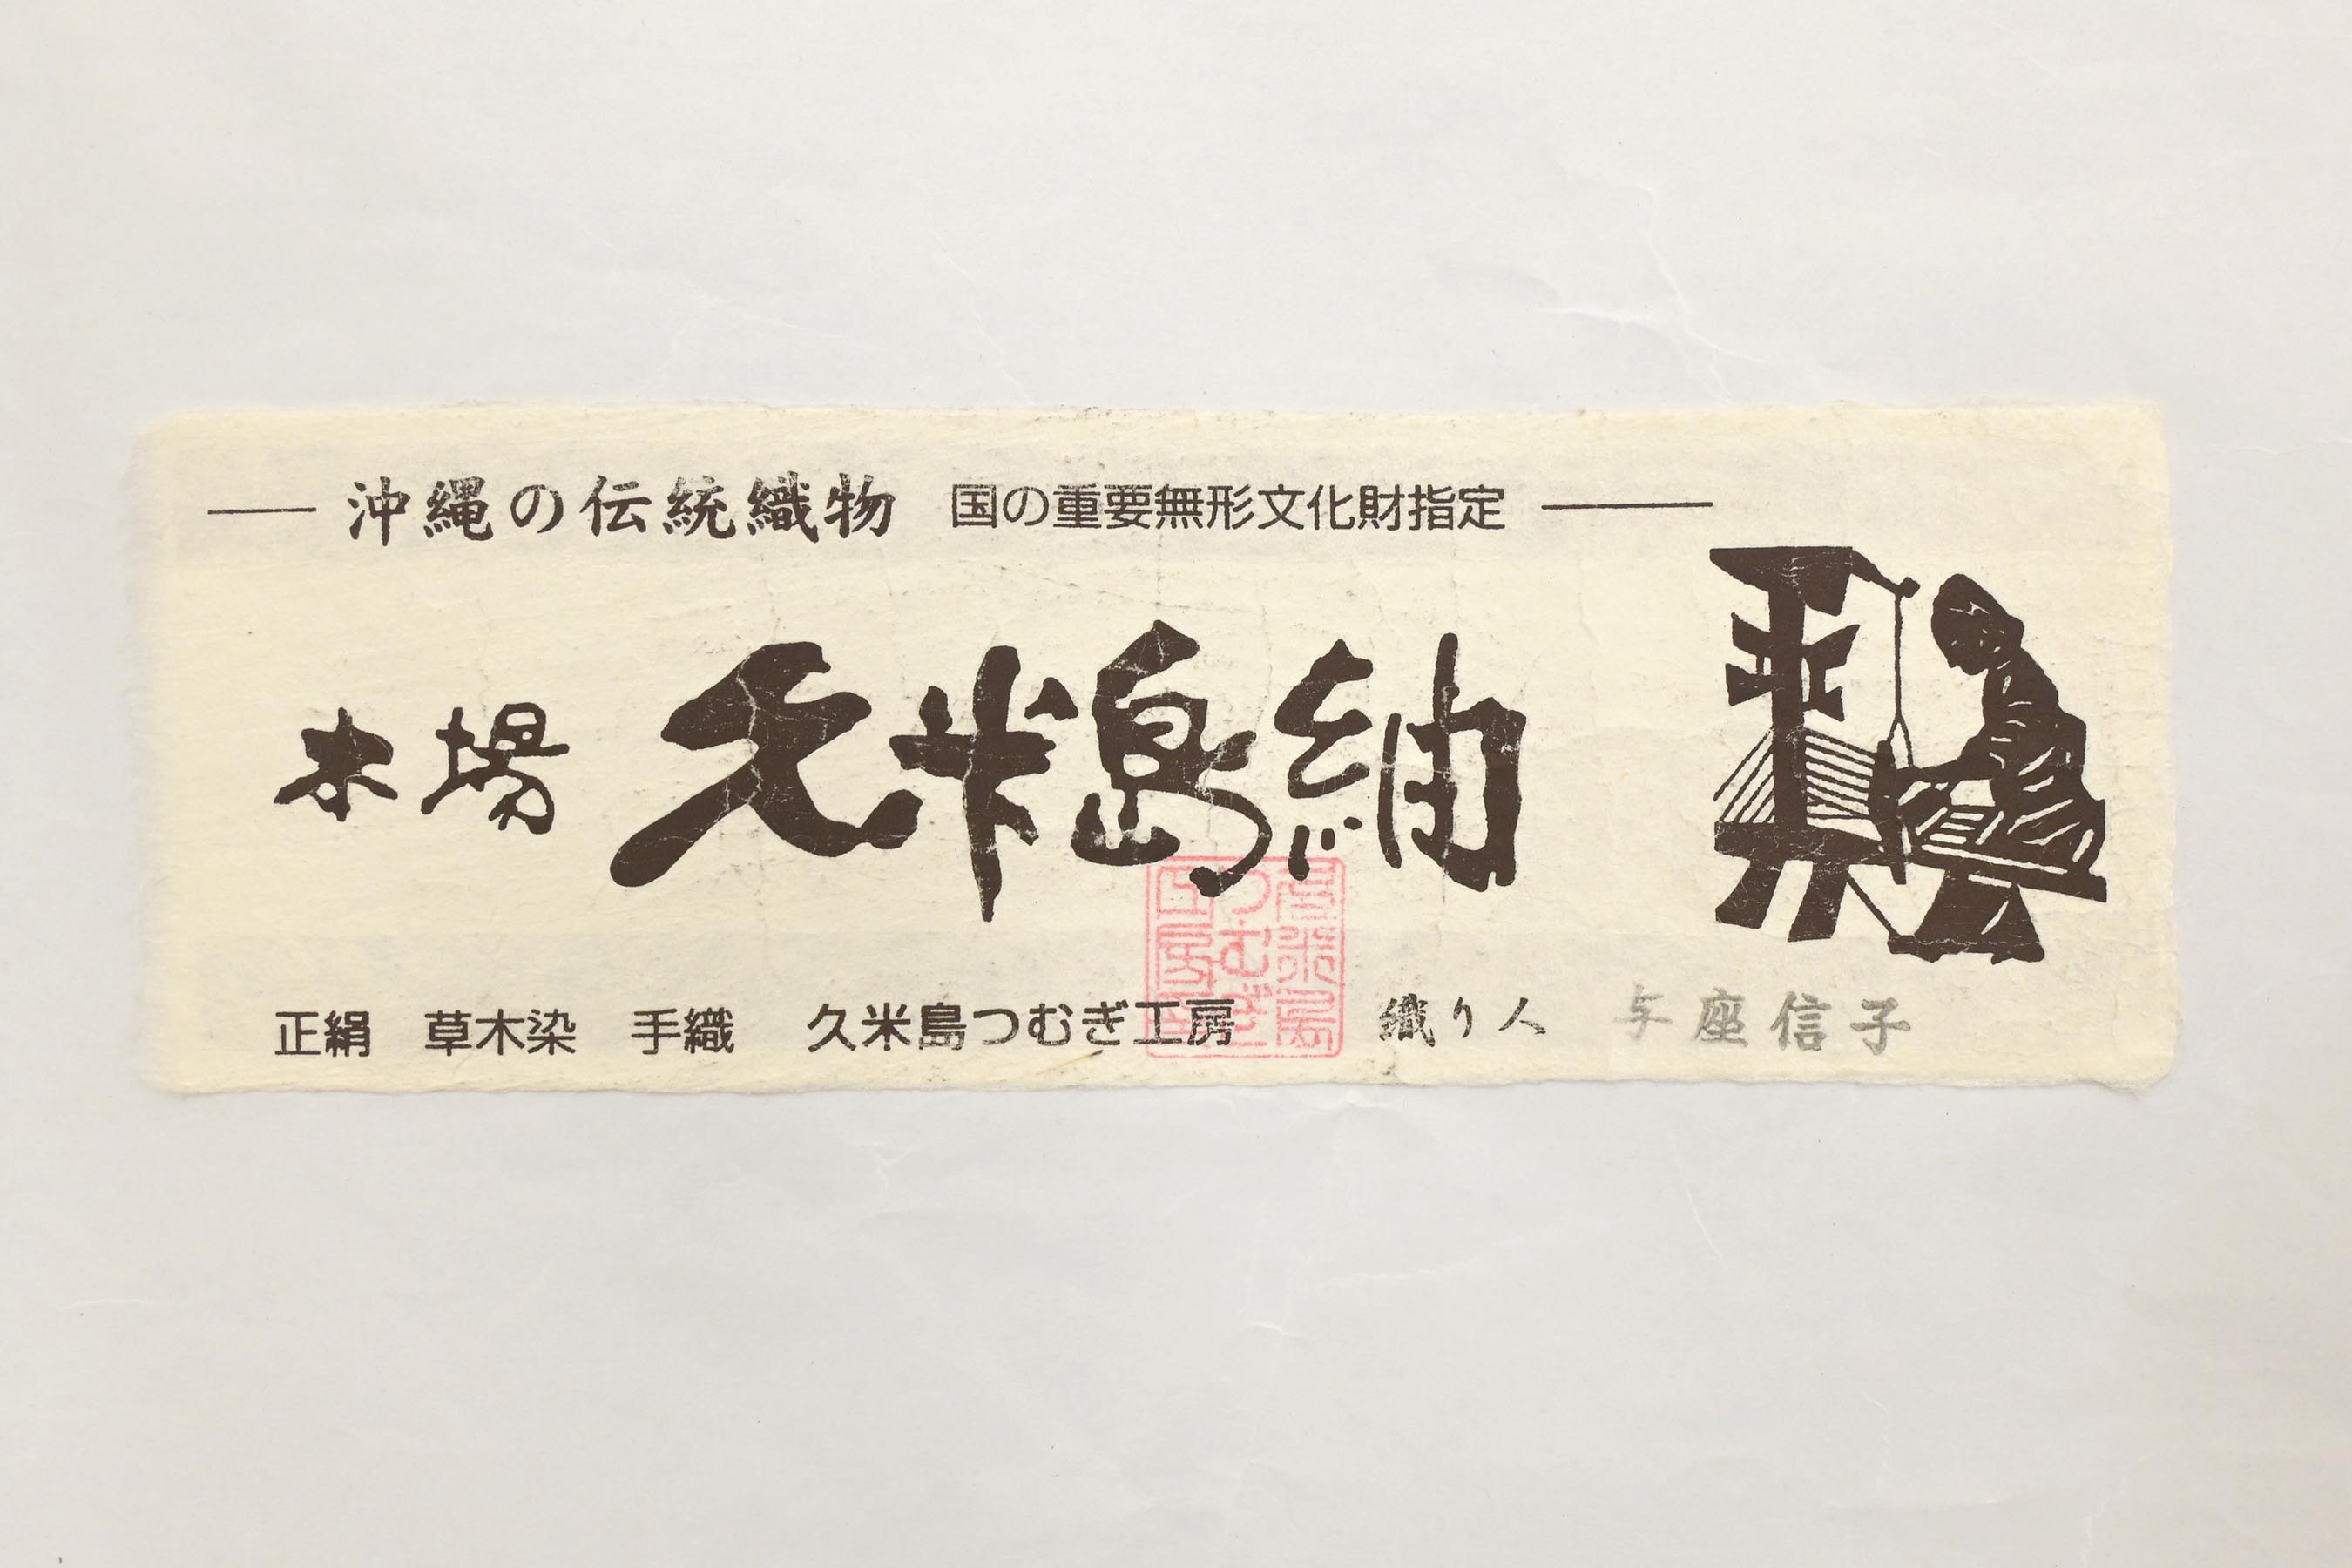 沖縄の伝統織物 国の重要無形文化財指定
本場 久米島紬
正絹 草木染 手織 久米島つむぎ工房 織り人 与座信子
久米島
つむぎ
工房